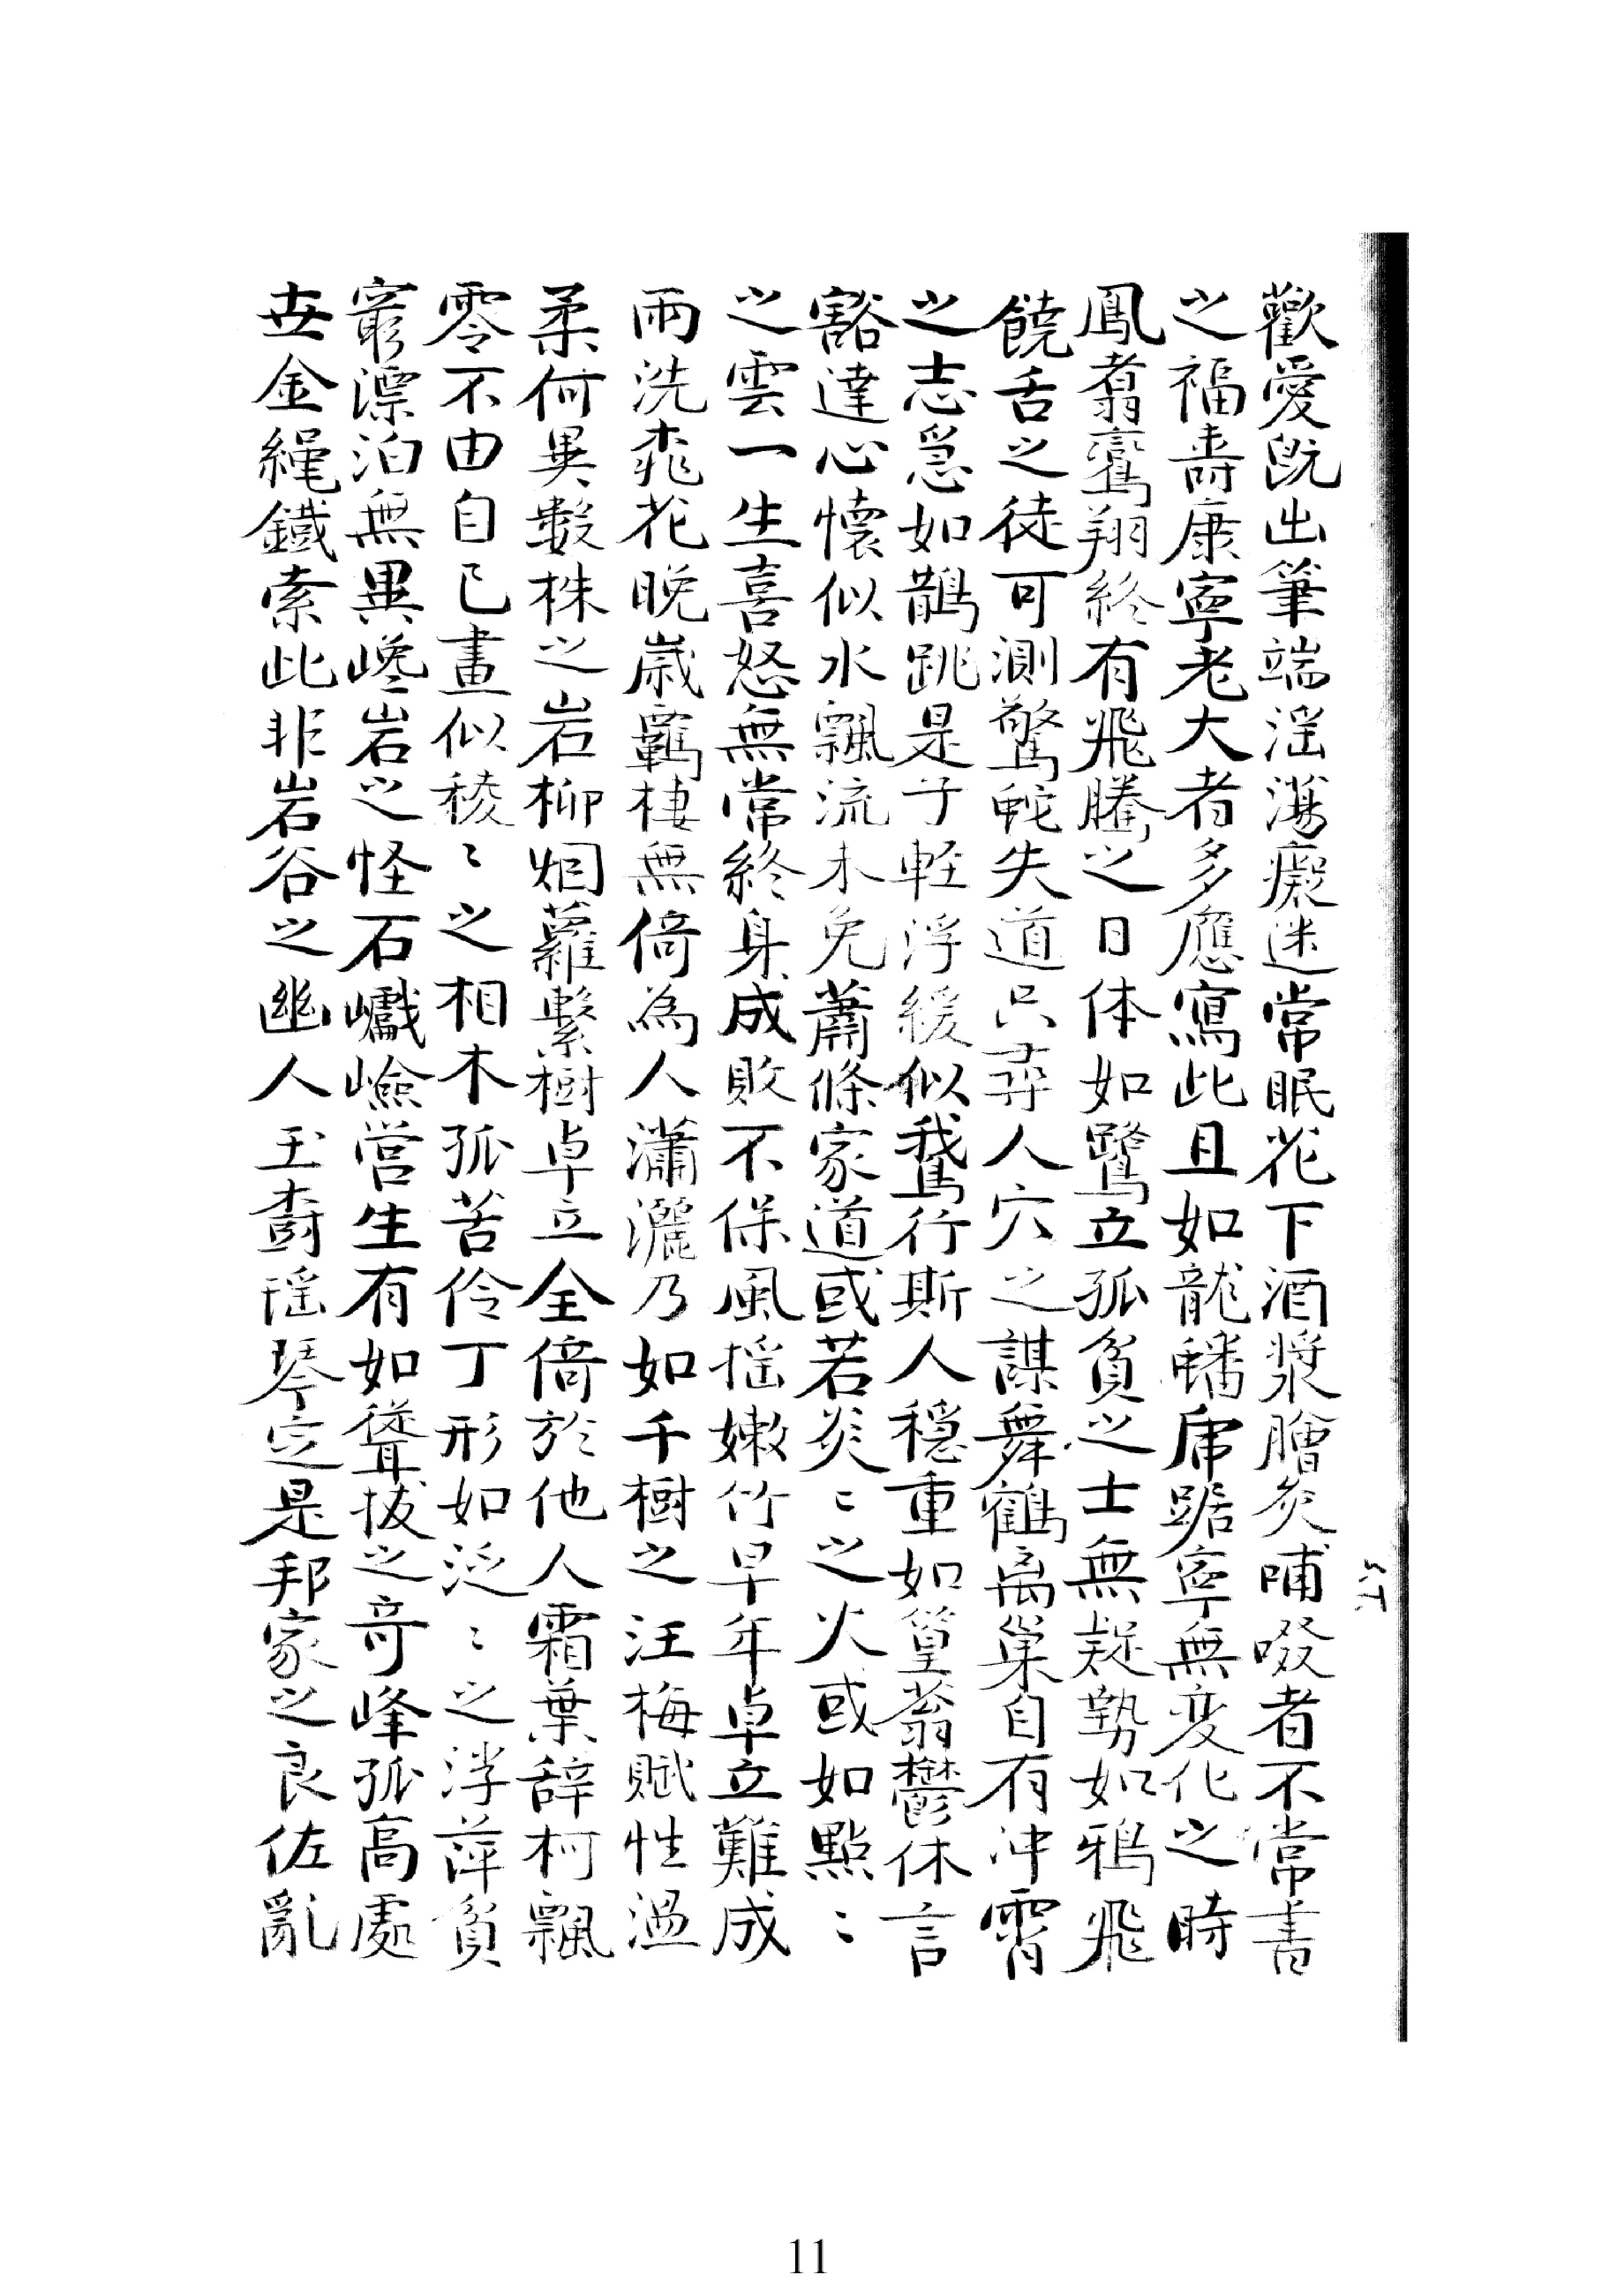 歡愛旣出筆端滛湯癡迷常眠花下酒漿膾炙哺啜者不常書
之福壽康寧老大者多應寫此且如龍蟠虎踞寧無変化之時
鳳翥鸞翔終有飛騰之日体如鷺立孤貧之士無疑勢如鴉飛
饒舌之徒可測驚蛇失道只尋人穴之謀舞鶴离巢自有沖霄
之志急如鵲跳是子輕浮緩似鵞行斯人穏重如篁蓊鬱休言
豁達心懷似水飄流未免蕭條家道或若炎〻之火或如點〻
之雲一生喜怒無常終身成敗不保風摇嫩竹早年卓立難成
雨洗桃花晚歲羈棲無倚為人瀟灑乃如千樹之汪梅賦性溫
柔何異數株之岩柳烟蘿繫樹卓立全倚於他人霜葉辞柯飄
零不由自已畫似稜〻之相木孤苦伶丁形如泛〻之浮萍貧
窮漂泊無異巉岩之怪石巇嶮営生有如聳拔之竒峰孤高處
世金繩鐵索此非岩谷之幽人玉树瑶琴定是邦家之良佐亂
11